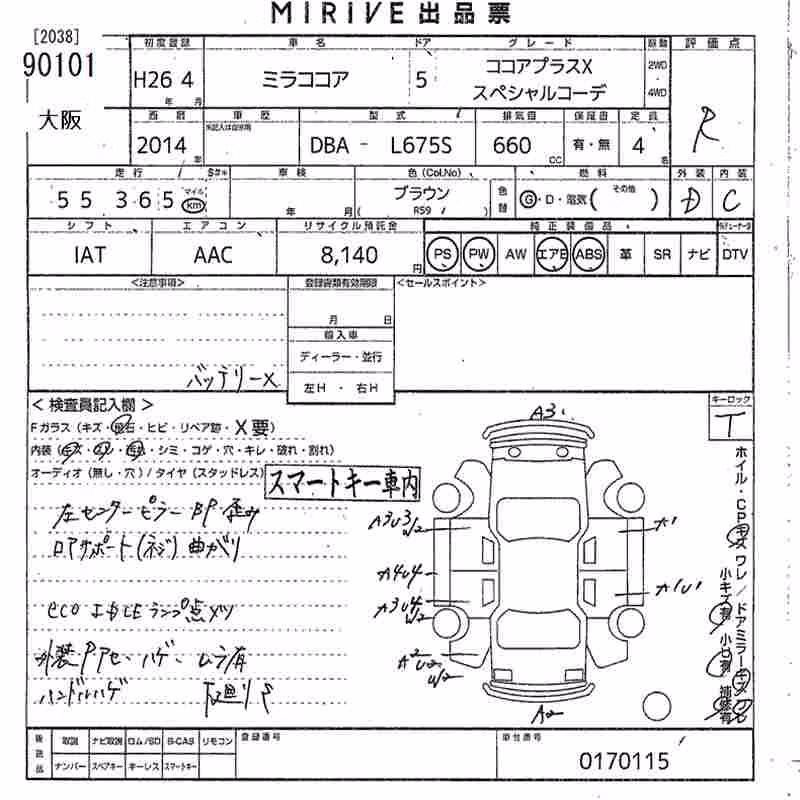 MIRIVE出品票
[2038]
90101
大阪
初度登録 車名 ドア グレード 駆動 評価点
H26 4 年 月
ミラココア
5
ココアプラスX
スペシャルコーデ
2WD
4WD
R
西暦 車歴 型式 排気量 保証書 定員
2014 年
DBA - L675S
660 CC
有・無
4 名
走行 車検 色(Col.No) 燃料 外装 内装
55 365 マイル km
年 月
ブラウン
R59
色替
G・D・電気( その他 )
D C
シフト エアコン リサイクル預託金 純正装備品
IAT AAC 8,140 円
PS PW AW エアB ABS 革 SR ナビ DTV
<注意事項> 登録書類有効期限 <セールスポイント>
月 日
輸入車
ディーラー・並行
左H・右H
バッテリーX
<検査員記入欄>
Fガラス(キズ・飛石・ヒビ・リペア跡・X要)
内装(キズ・汚レ・色あせ・シミ・コゲ・穴・キレ・破れ・割れ)
オーディオ(無し・穴)/タイヤ(スタッドレス)
スマートキー車内
キーロック
T
左センターピラー BP 歪み
ロアサポート(ネジ)曲がり
外装 ハゲ・ムラ有
ハンドルハゲ 下廻りS
A3
A3U3
W2
A4U4
A3U4
W2
A2
U2
W2
A1
A1U1
A2
ホイル・CPキズ ワレ/ドアミラーキズ ワレ
小キズ有 小凹有 補修有
後送品
取説 ナビ取説 ロム/SD B-CAS リモコン
ナンバー スペアキー キーレス スマートキー
登録番号
車台番号
0170115